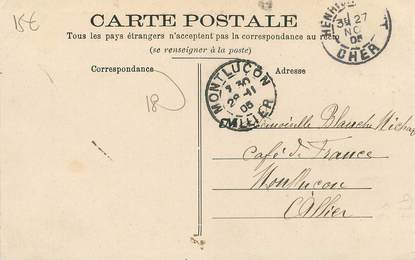 15€
CARTE POSTALE
Tous les pays étrangers n'acceptent pas la correspondance au recto
(se renseigner à la poste)
Correspondance
Adresse
27
NO
05
CHER
MONTLUÇON
7 30
28-11
05
ALLIER
18
Mademoiselle Blanche
Café de France
Montluçon
Allier